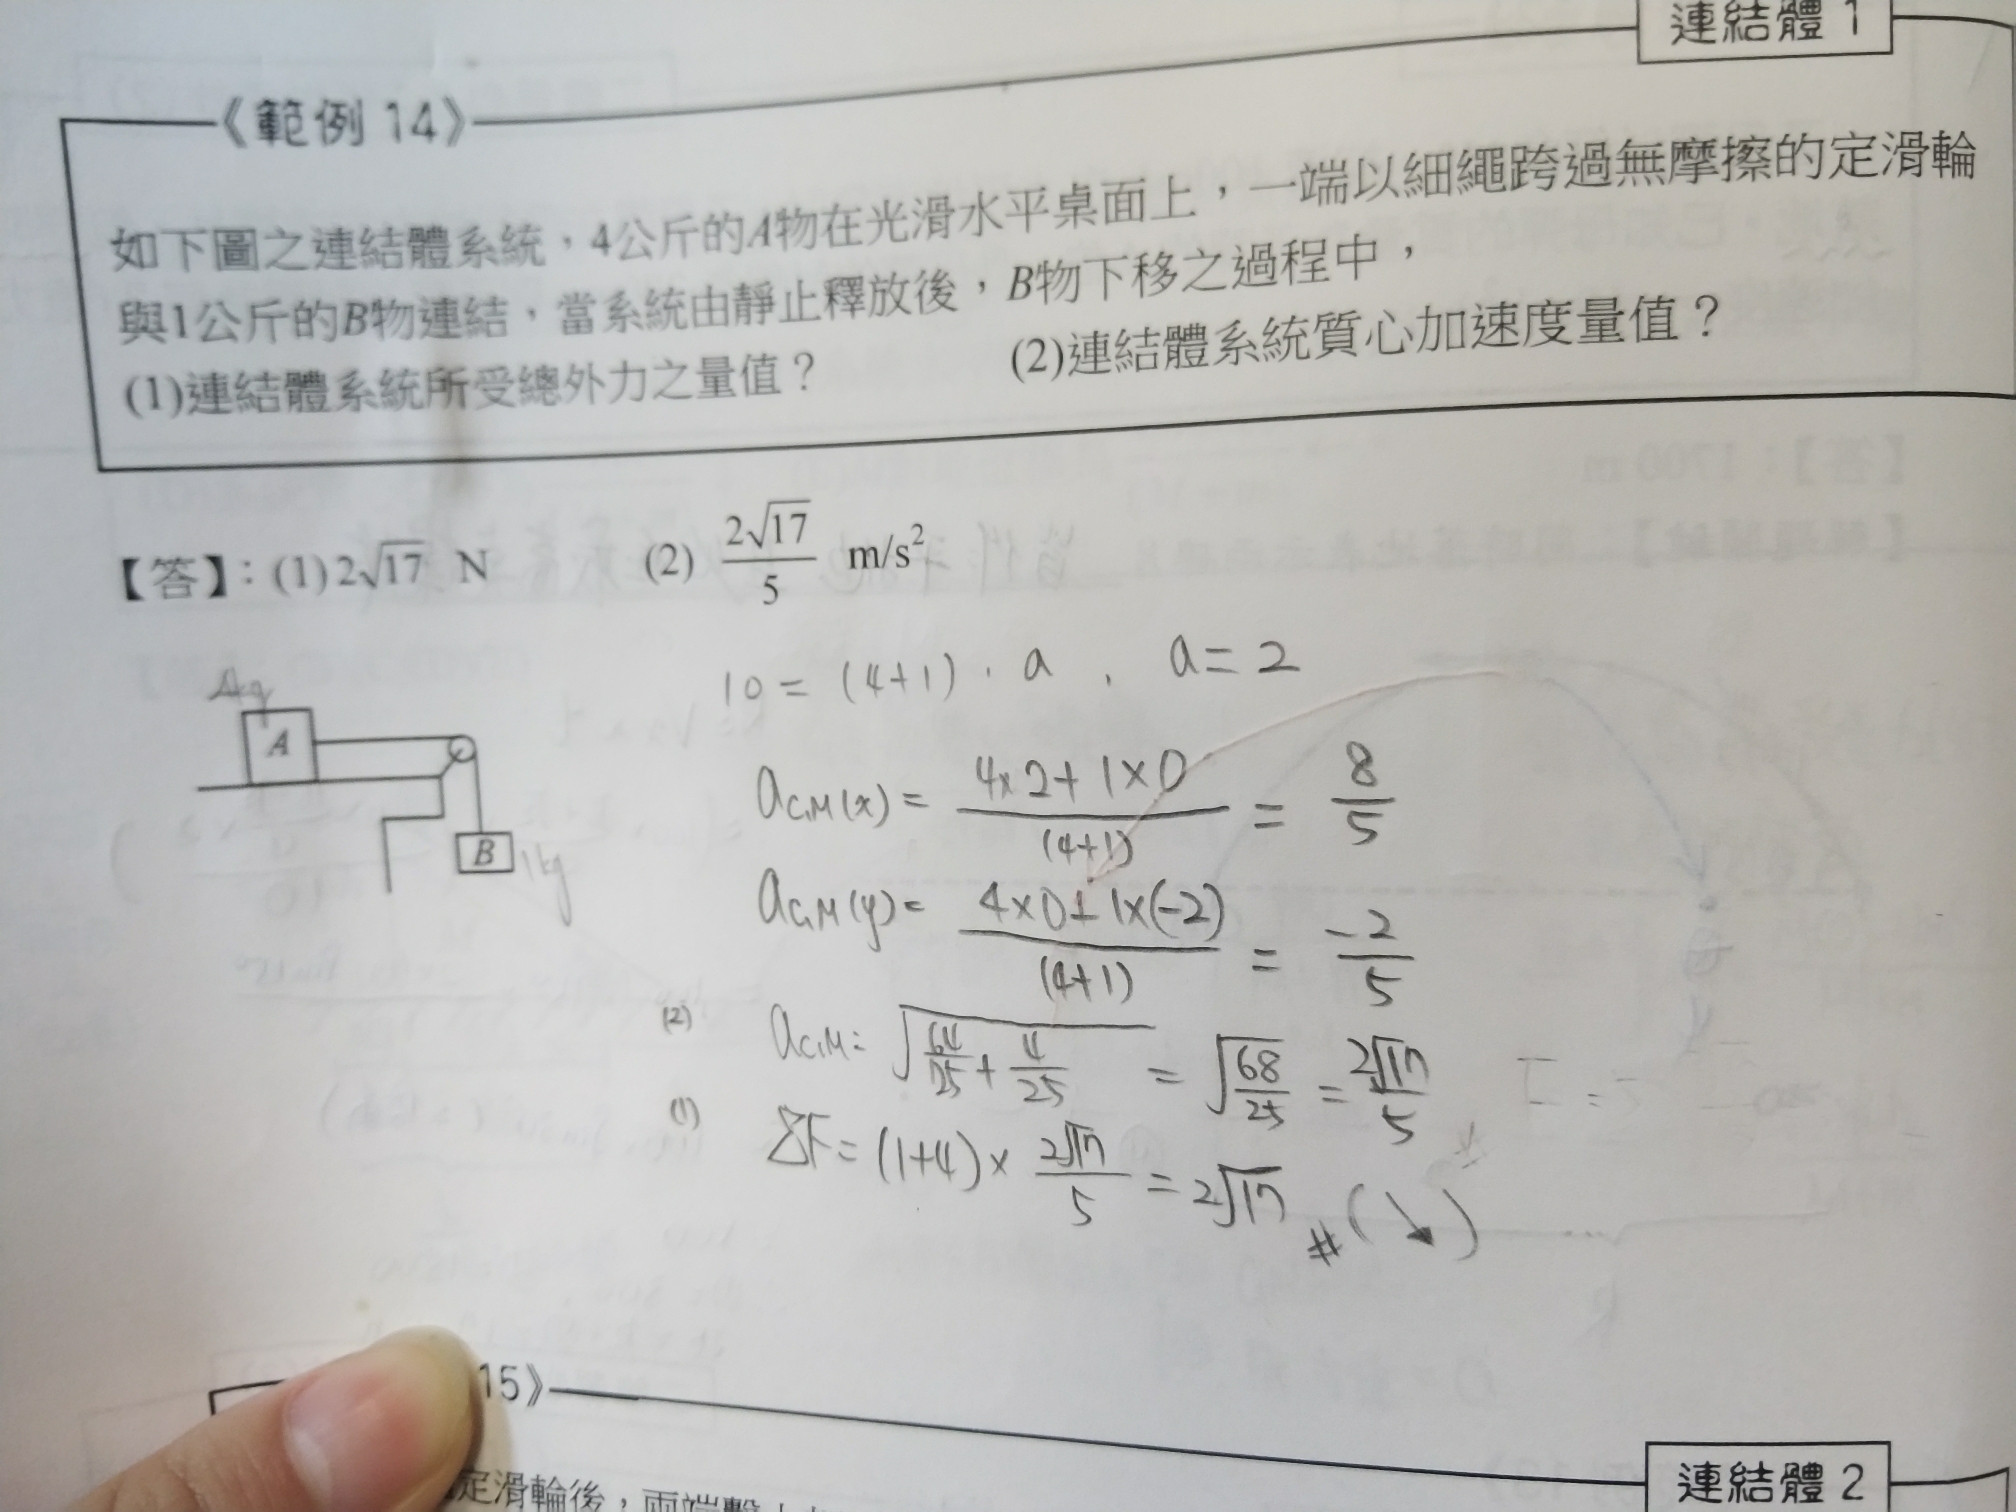 連結體 1
《範例 14》
如下圖之連結體系統，4公斤的A物在光滑水平桌面上，一端以細繩跨過無摩擦的定滑輪
與1公斤的B物連結，當系統由靜止釋放後，B物下移之過程中，
(1)連結體系統所受總外力之量值？ (2)連結體系統質心加速度量值？
【答】：(1) 2√17 N (2) 2√17/5 m/s²
10 = (4+1) · a , a = 2
4kg
A
B 1kg
a_{C,M(x)} = (4×2+1×0)/(4+1) = 8/5
a_{C,M(y)} = (4×0+1×(-2))/(4+1) = -2/5
(2) a_{C,M} = √(64/25 + 4/25) = √(68/25) = 2√17/5
(1) ΣF = (1+4) × 2√17/5 = 2√17 # (↘)
15》
定滑輪後，兩端
連結體 2